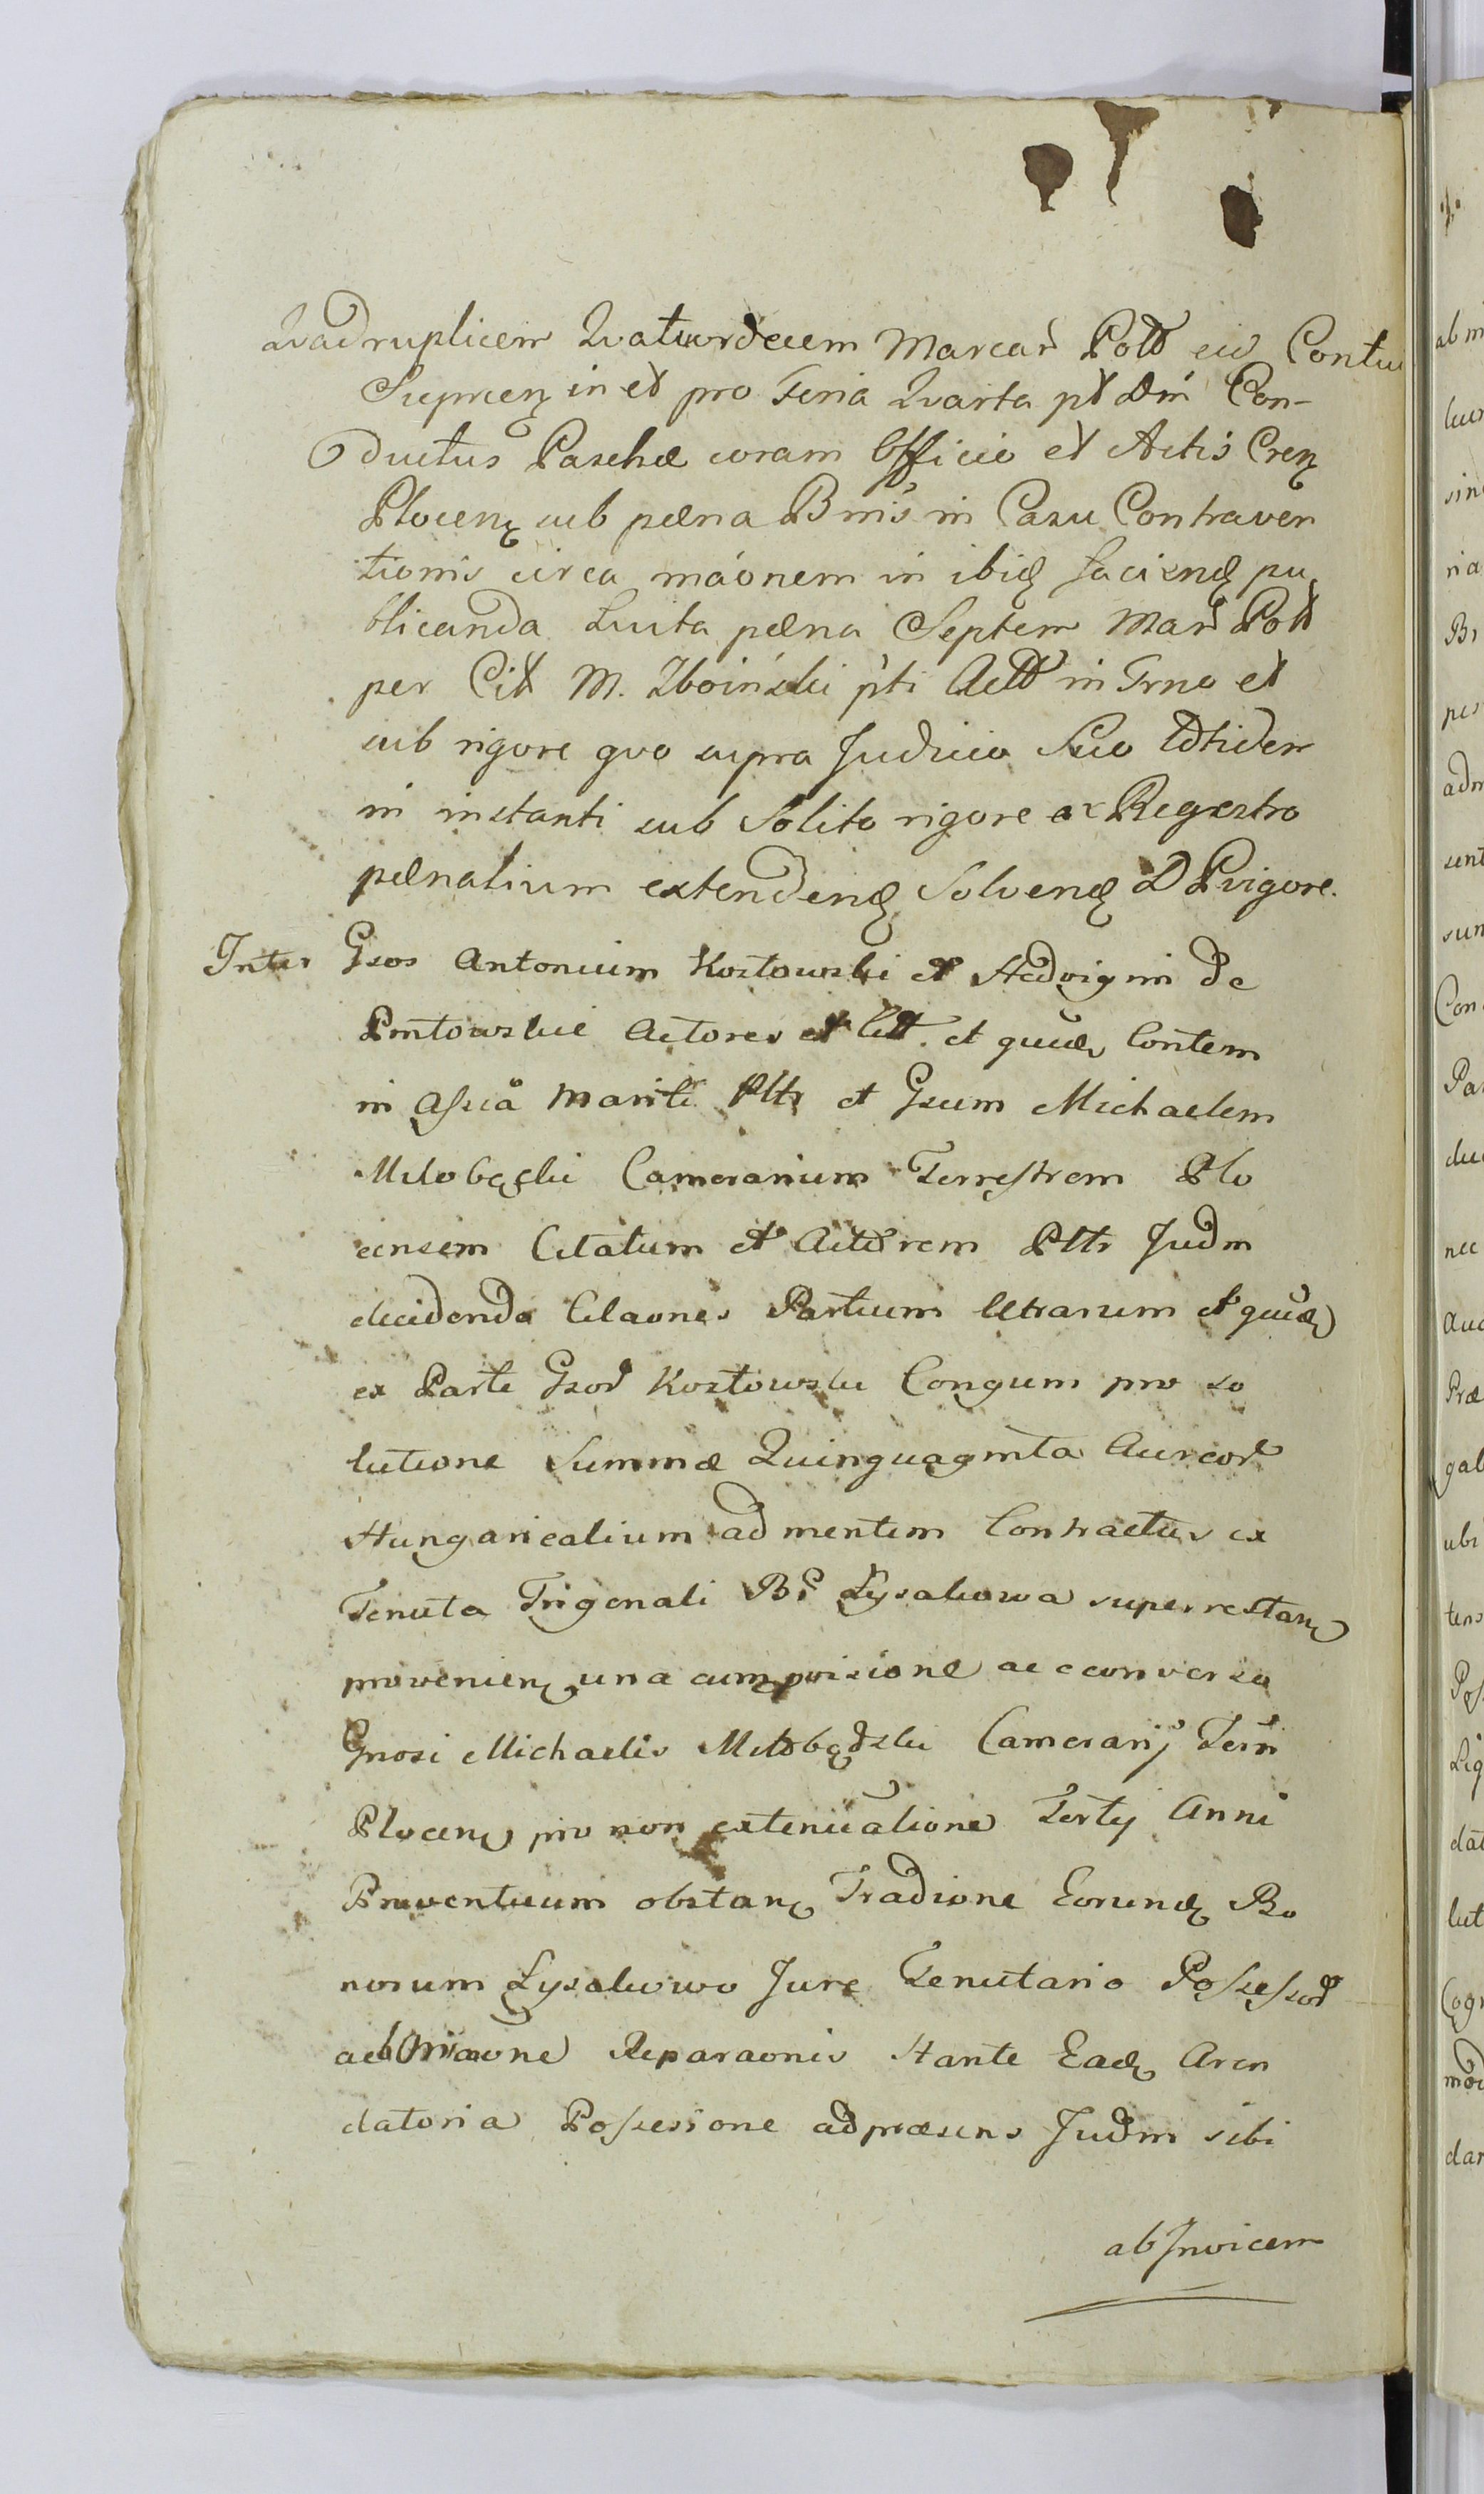 Qvadruplicem Qvatuordecem Marcar Poll eid Contu
Supreen in et pro Feria Qvarta pt Dm Con-
ductus Paschæ coram Officio et Actis Cren
Plocen sub pæna Bnis in Casu Contraven
tionis circa máonem in ibid faciend pu,
blicanda Luita pæna Septem Mar Poll
per Cit M. Zboinski pti Act in Trno et
sub rigore qvo supra Judicio Suo Ibtidem
in instanti sub Solito rigore ex Regestro
pænalium extendend Solvend D Pvigore.
Inter Gsos Antonium Kostowski et Hedvigim de
Actores et Citt. et quidem Contem
in Assiá Mariti Pltr et Gsum Michaelem
Miłobęcki Camerarium Terrestrem Plo
censem Citatum et Actorem Pltr Judm
decidenda Citaones Partium Utrarum et quidem
ex Parte Gsor Kostowski Congum pro so
lutione Summæ Quinquaginta Aureor
Hungaricalium ad mentem Contractus ex
Tenuta Trigenali Br Lysakowa superrestan
provenien una cum poisione ac econverso
Gnosi Michaelis Miłobędzki Camerarij Terri
Plocen pro non extenuatione Tertij Anni
Proventuum obstan Tradione Eorund Bo
norum Lysakowo Jure Tenutario Possessor
ac Reparaonis Stante Ead Aren
datoria Possesione ad præsens Judm sibi
ab Invicem